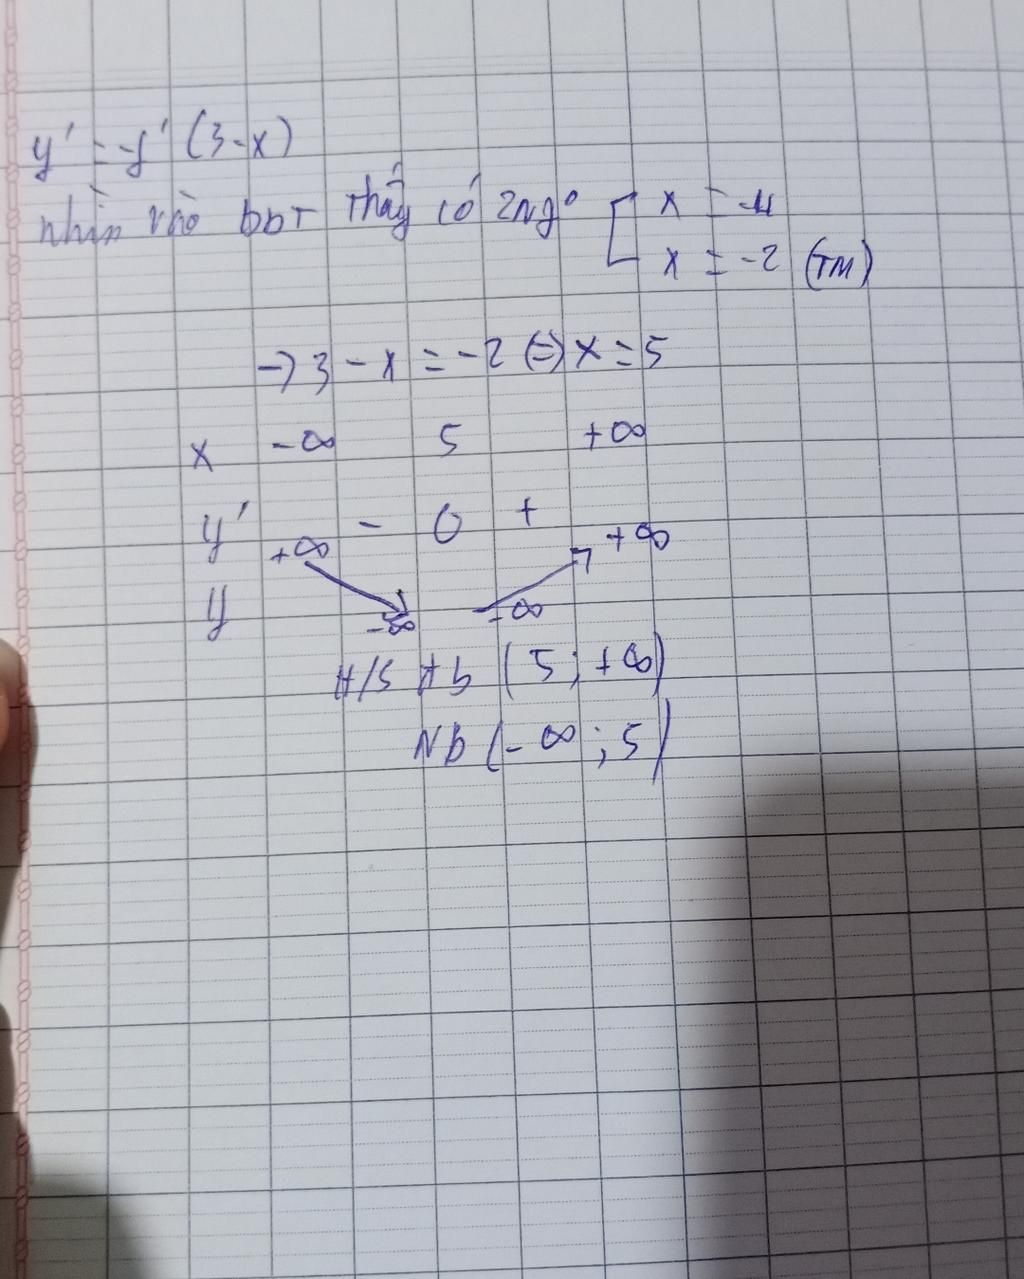 y' = -f' (3-x)
nhìn vào bbT thấy có 2 ng⁰ [ x = -4
x = -2 (TM)
→ 3 - x = -2 (=) x = 5
x -∞ 5 +∞
y' - 0 +
+∞ +∞
y
-∞ -∞
H/S ĐB (5; +∞)
NB (-∞; 5)